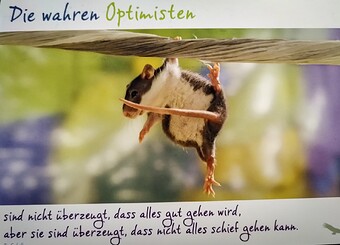 Die wahren Optimisten
sind nicht überzeugt, dass alles gut gehen wird,
aber sie sind überzeugt, dass nicht alles schief gehen kann.